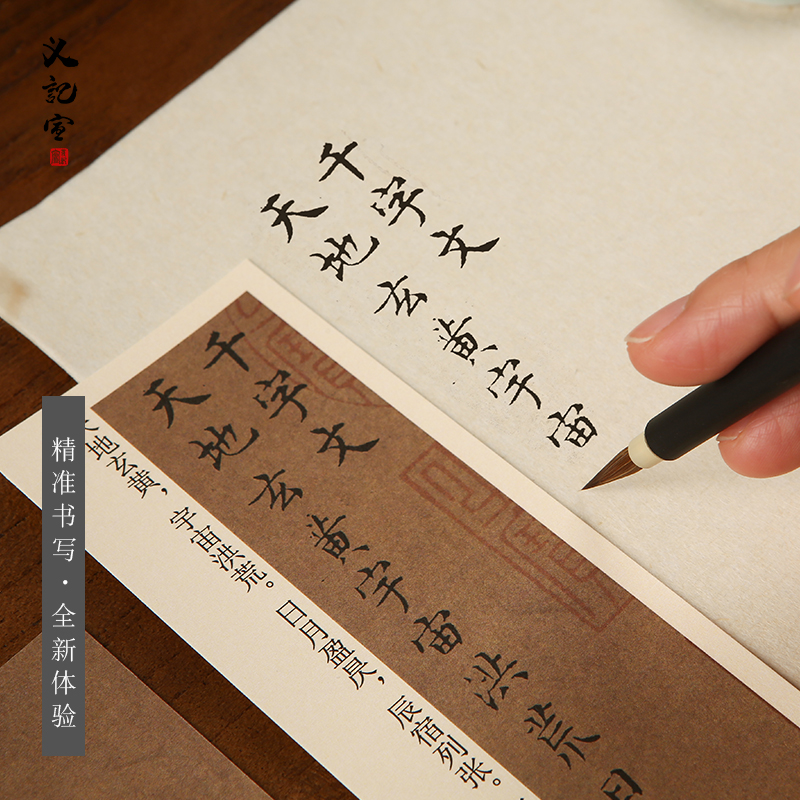 义記宣
精准书写·全新体验
千字文
天地玄黄宇宙
千字文
天地玄黄宇宙洪荒日
地玄黄，宇宙洪荒。日月盈昃，辰宿列张。